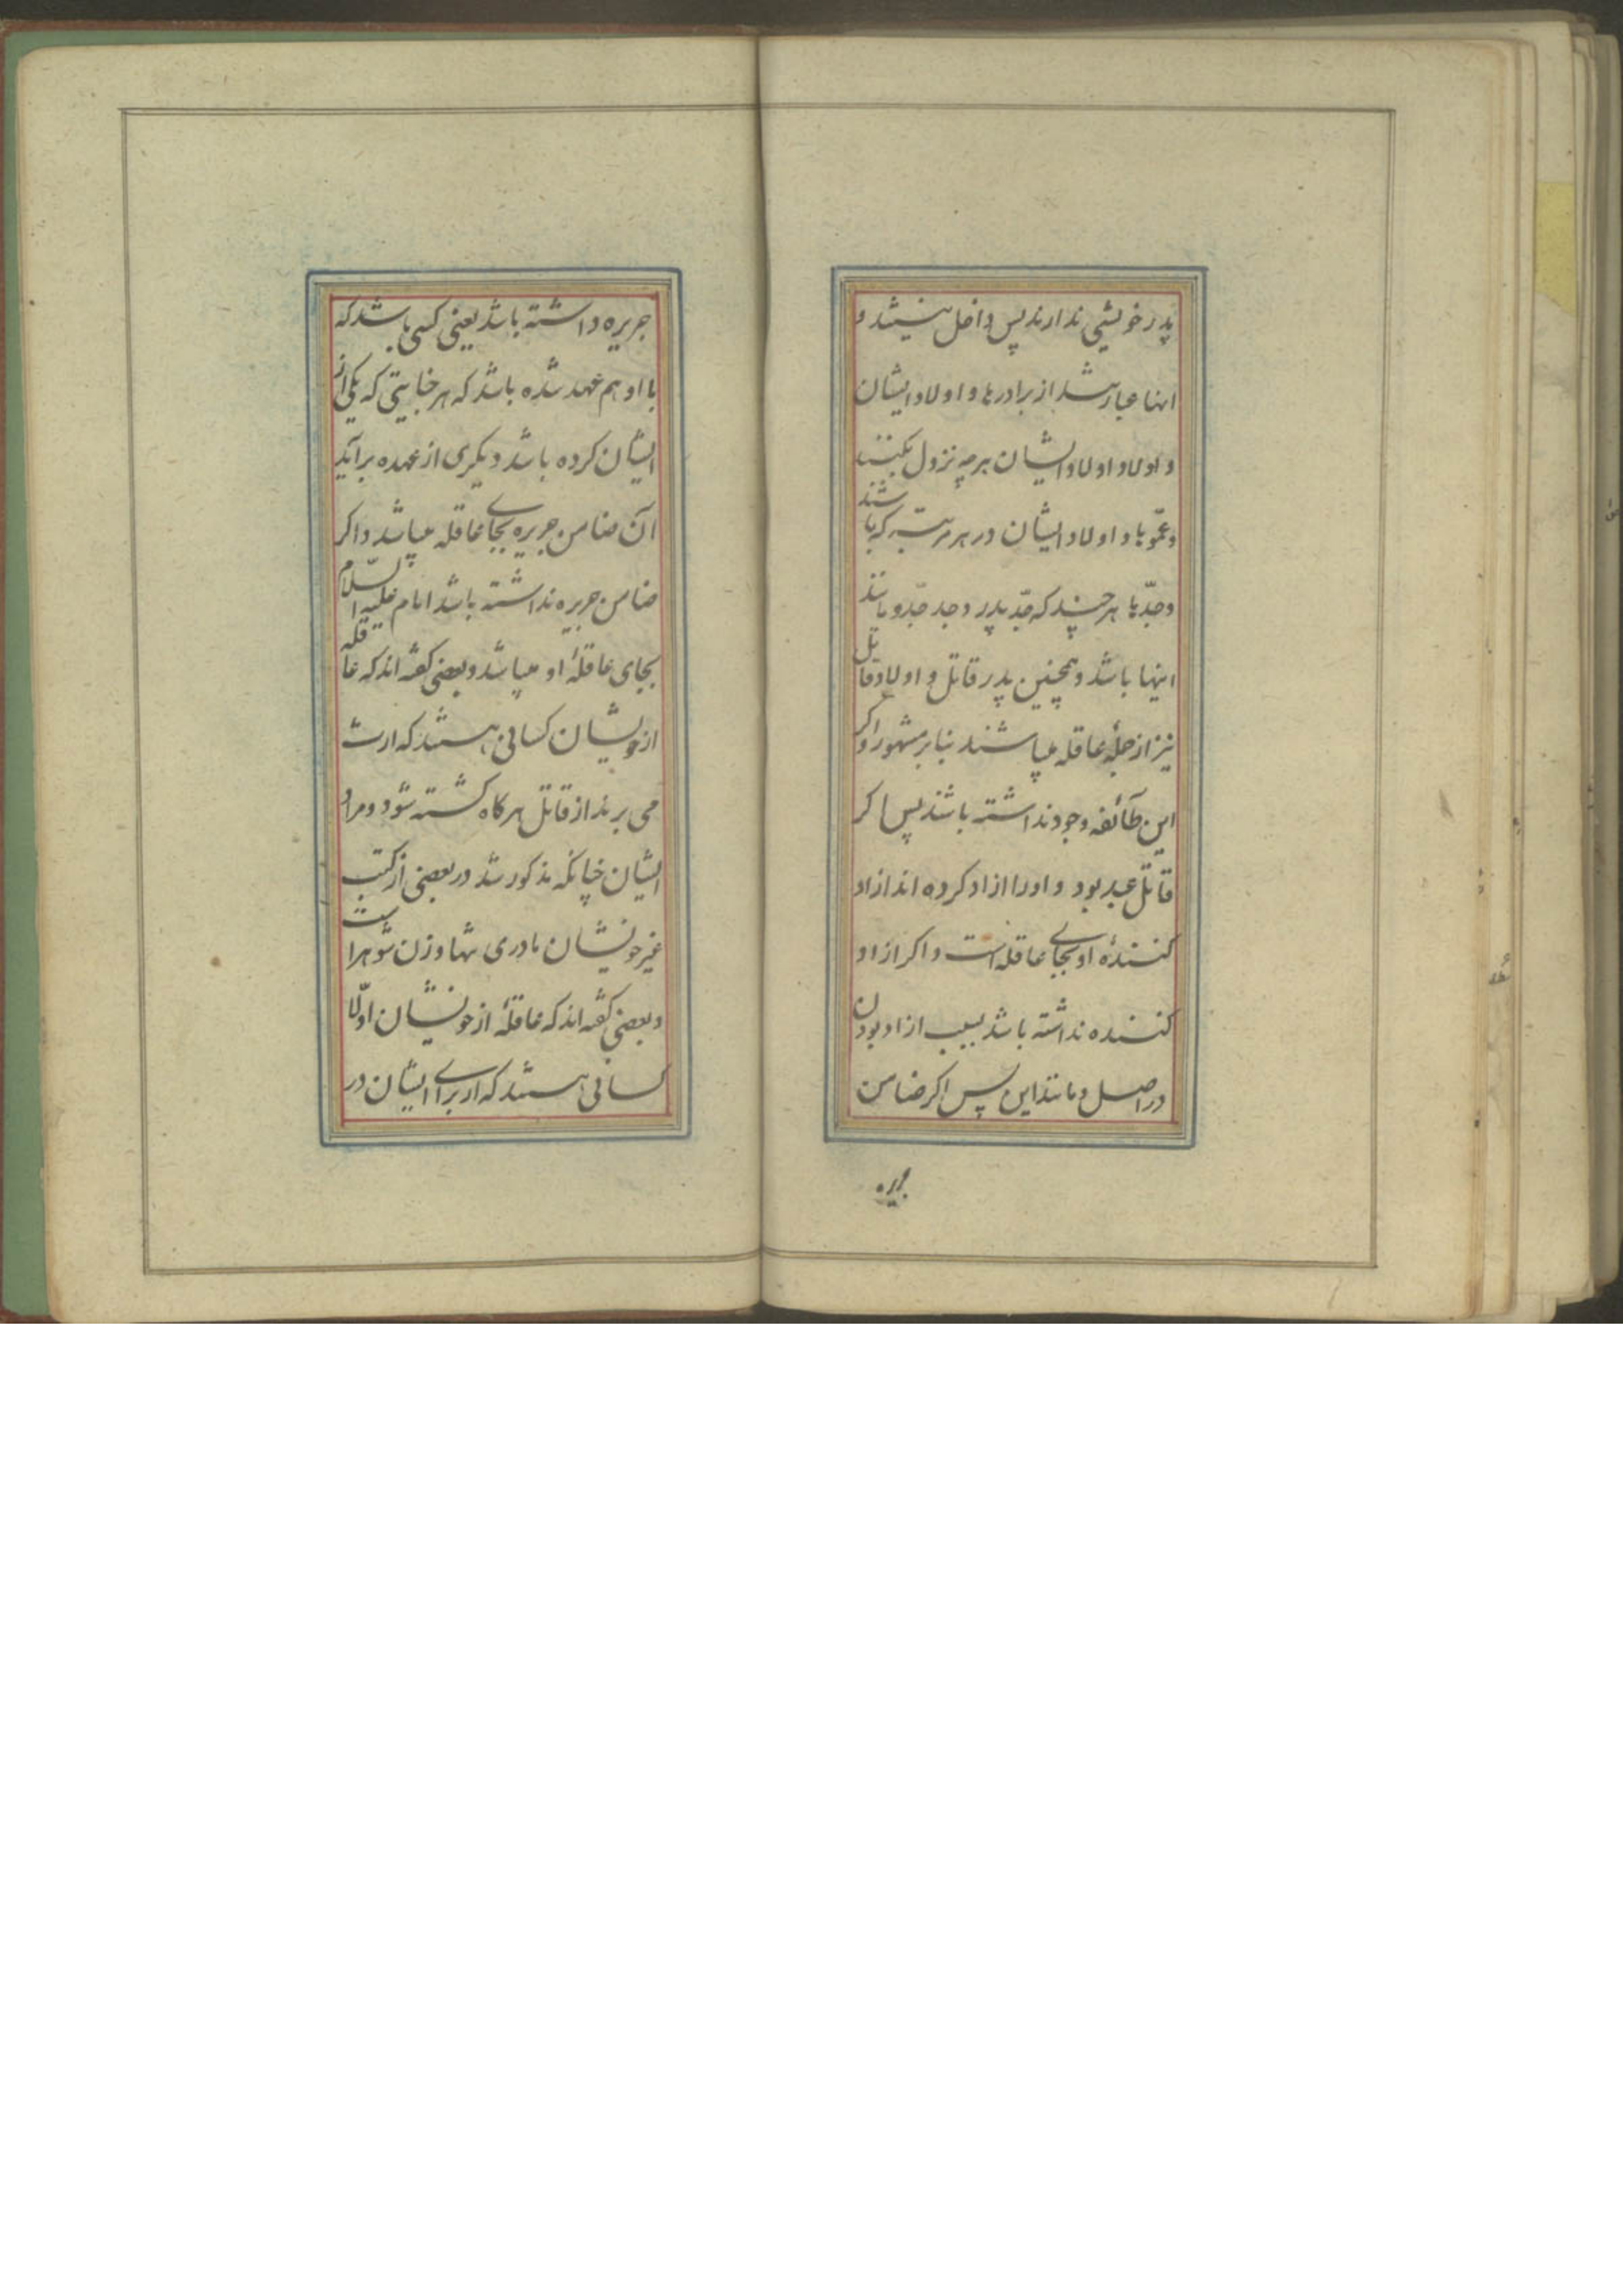 پدر خویشی ندارند پس داخل نیستند و
اینها عبارتند از برادرها و اولاد ایشان
و اولاد اولاد ایشان هرچه نزول بکنند
و عموها و اولاد ایشان در هر مرتبه که باشند
و جدّها هر چند که جدّ پدر و جد جدّ و مانند
اینها باشد و همچنین پدر قاتل و اولاد قاتل
نیز از جملهٔ عاقله میباشند بنابر مشهور و اکر
این طائفه وجود نداشته باشند پس اکر
قاتل عبد بود و اورا ازاد کرده اند ازاد
کنندهٔ او بجای عاقله است و اکر ازاد
کننده نداشته باشد بسبب ازاد بودن
در اصل و مانند این پس اکر ضامن
جریره
جریره داشته باشد یعنی کسی باشد که
با او هم عهد شده باشد که هر جنایتی که یکی از
ایشان کرده باشد دیکری از عهده برآید
آن ضامن جریره بجای عاقله میباشد و اکر
ضامن جریره نداشته باشد امام علیه السّلام
بجای عاقلهٔ او میباشد و بعضی کفته اند که عاقله
از خویشان کسانی هستند که ارث
می برند از قاتل هرکاه کشته شود و مراد
ایشان چنانکه مذکور شد در بعضی از کتب
غیر خویشان مادری تنها و زن شوهر است
و بعضی کفته اند که عاقلهٔ از خویشان اوّلا
کسانی هستند که از برای ایشان در